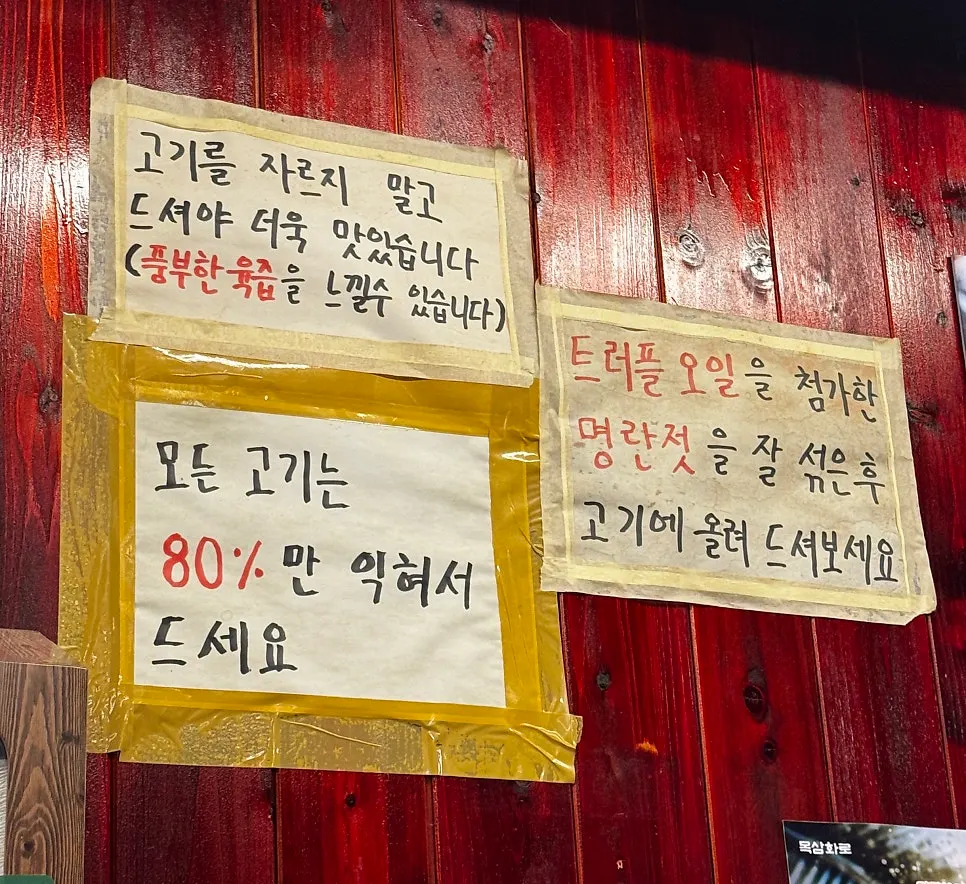 고기를 자르지 말고
드셔야 더욱 맛있습니다
(풍부한 육즙을 느낄수 있습니다)
트러플 오일을 첨가한
명란젓을 잘 섞은후
고기에 올려 드셔보세요
모든 고기는
80%만 익혀서
드세요
목삼화로